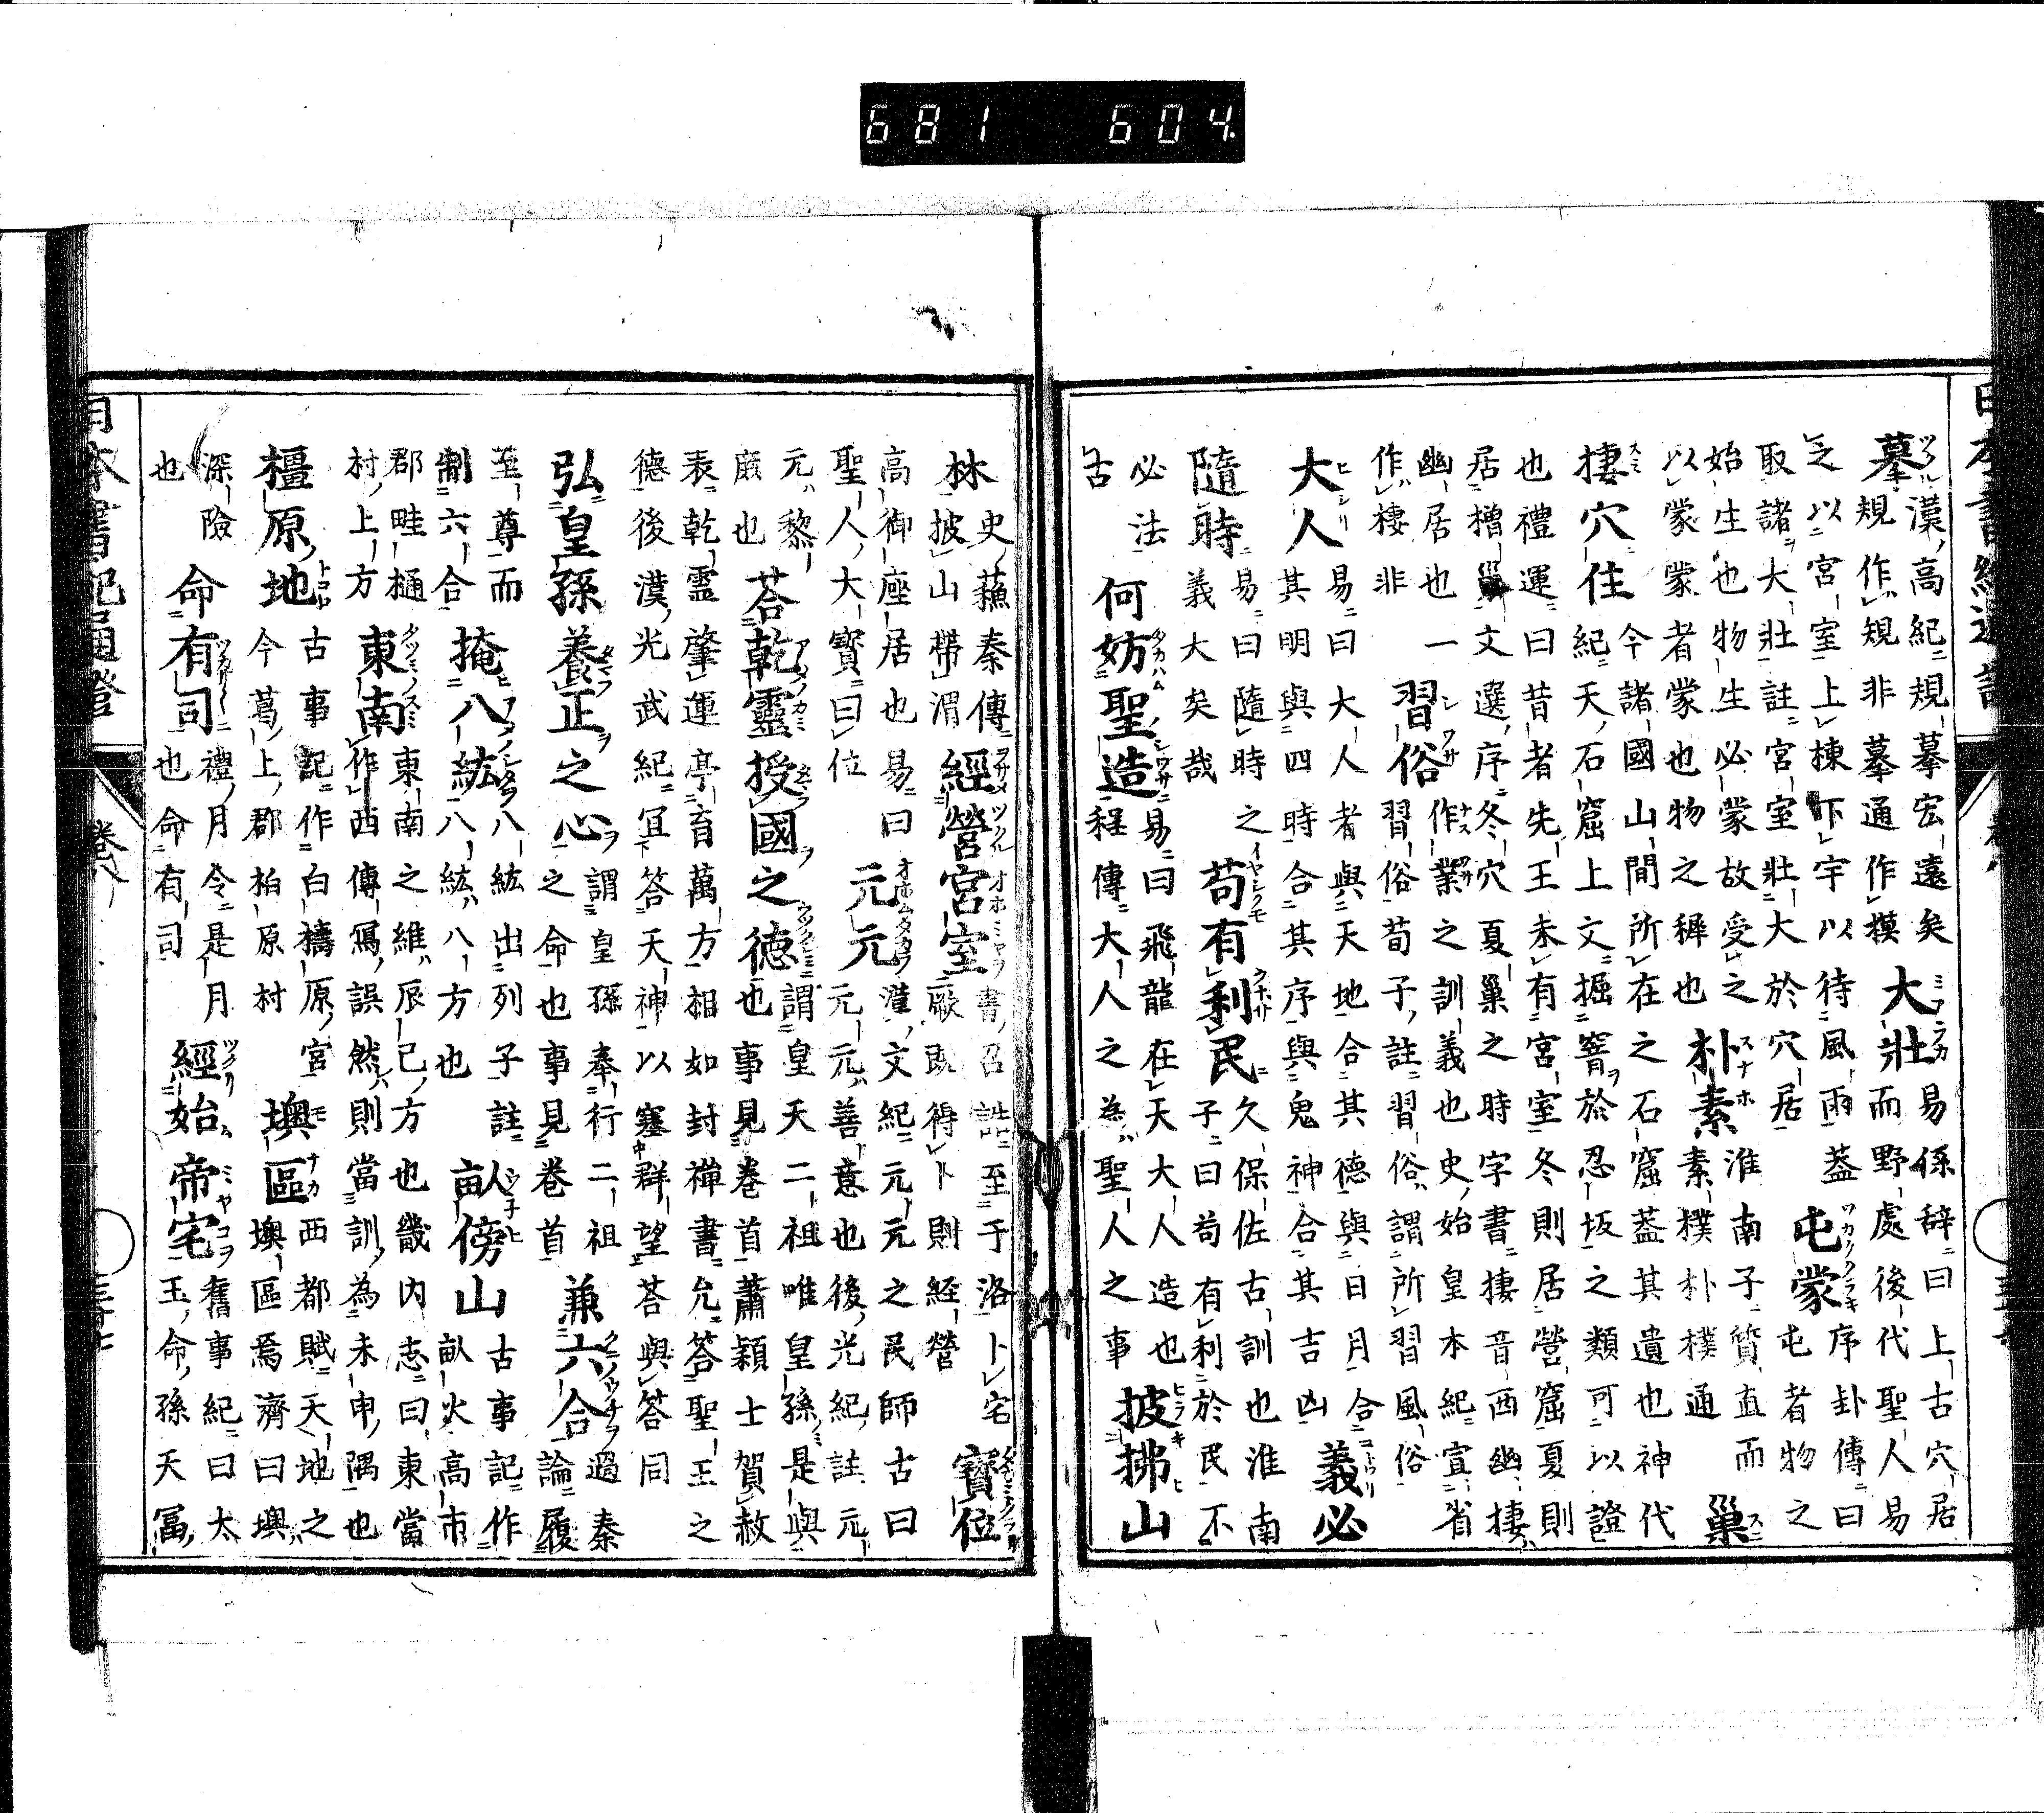 摹
漢高紀規摹宏遠矣
規作規非摹通作模
大壯
易係辞曰上古穴居
而野處後代聖人易
之以宮室上棟下宇以待風雨蓋
取諸大壯註宮室壯大於穴居
屯蒙
序卦傳曰
屯者物之
始生也物生必蒙故受之
以蒙蒙者蒙也物之穉也
朴素
淮南子質直而
素樸朴樸通
巢
棲穴住
今諸國山間所在之石窟蓋其遺也神代
紀天石窟上文掘窨於忍坂之類可以證
也禮運曰昔者先王未有宮室冬則居營窟夏則
居橧巢文選序冬穴夏巢之時字書捿音西幽捿
幽居也一
作棲非
習俗
作業之訓義也史始皇本紀宣省
習俗荀子註習俗謂所習風俗
大人
易曰大人者與天地合其德與日月合
其明與四時合其序與鬼神合其吉凶
義必
隨時
易曰隨時之
義大矣哉
苟有利民
久保佐古訓也淮南
子曰苟有利於民不
必法
古
何妨聖造
易曰飛龍在天大人造也
程傳大人之為聖人之事
披拂山
林
史蘓秦傳
披山帶渭
經營宮室
書召誥至于洛卜宅
厥既得卜則経營
寶位
高御座居也易曰
聖人大寶曰位
元元
漢文紀元元之民師古曰
元元善意也後光紀註元
元黎
蔗也
荅乾靈授國之德
謂皇天二祖唯皇孫是與
也事見卷首蕭穎士賀赦
表乾霊肇運亭育萬方相如封禅書允答聖王之
德後漢光武紀冝答天神以塞群望荅與答同
弘皇孫養正之心
謂皇孫奉行二祖
之命也事見卷首
兼六合
過秦
論履
至尊而
制六合
掩八紘
八紘出列子註
八紘八方也
畝傍山
古事記作
畝火高市
郡畦樋
村上方
東南
東南之維辰巳方也畿内志曰東當
作西傳寫誤然則當訓為未申隅也
橿原地
古事記作白檮原宮
今葛上郡柏原村
墺區
西都賦天地之
墺區焉濟曰墺
深險
也
命有司
禮月令是月
也命有司
經始帝宅
舊事紀曰太
玉命孫天冨
日本書紀通證